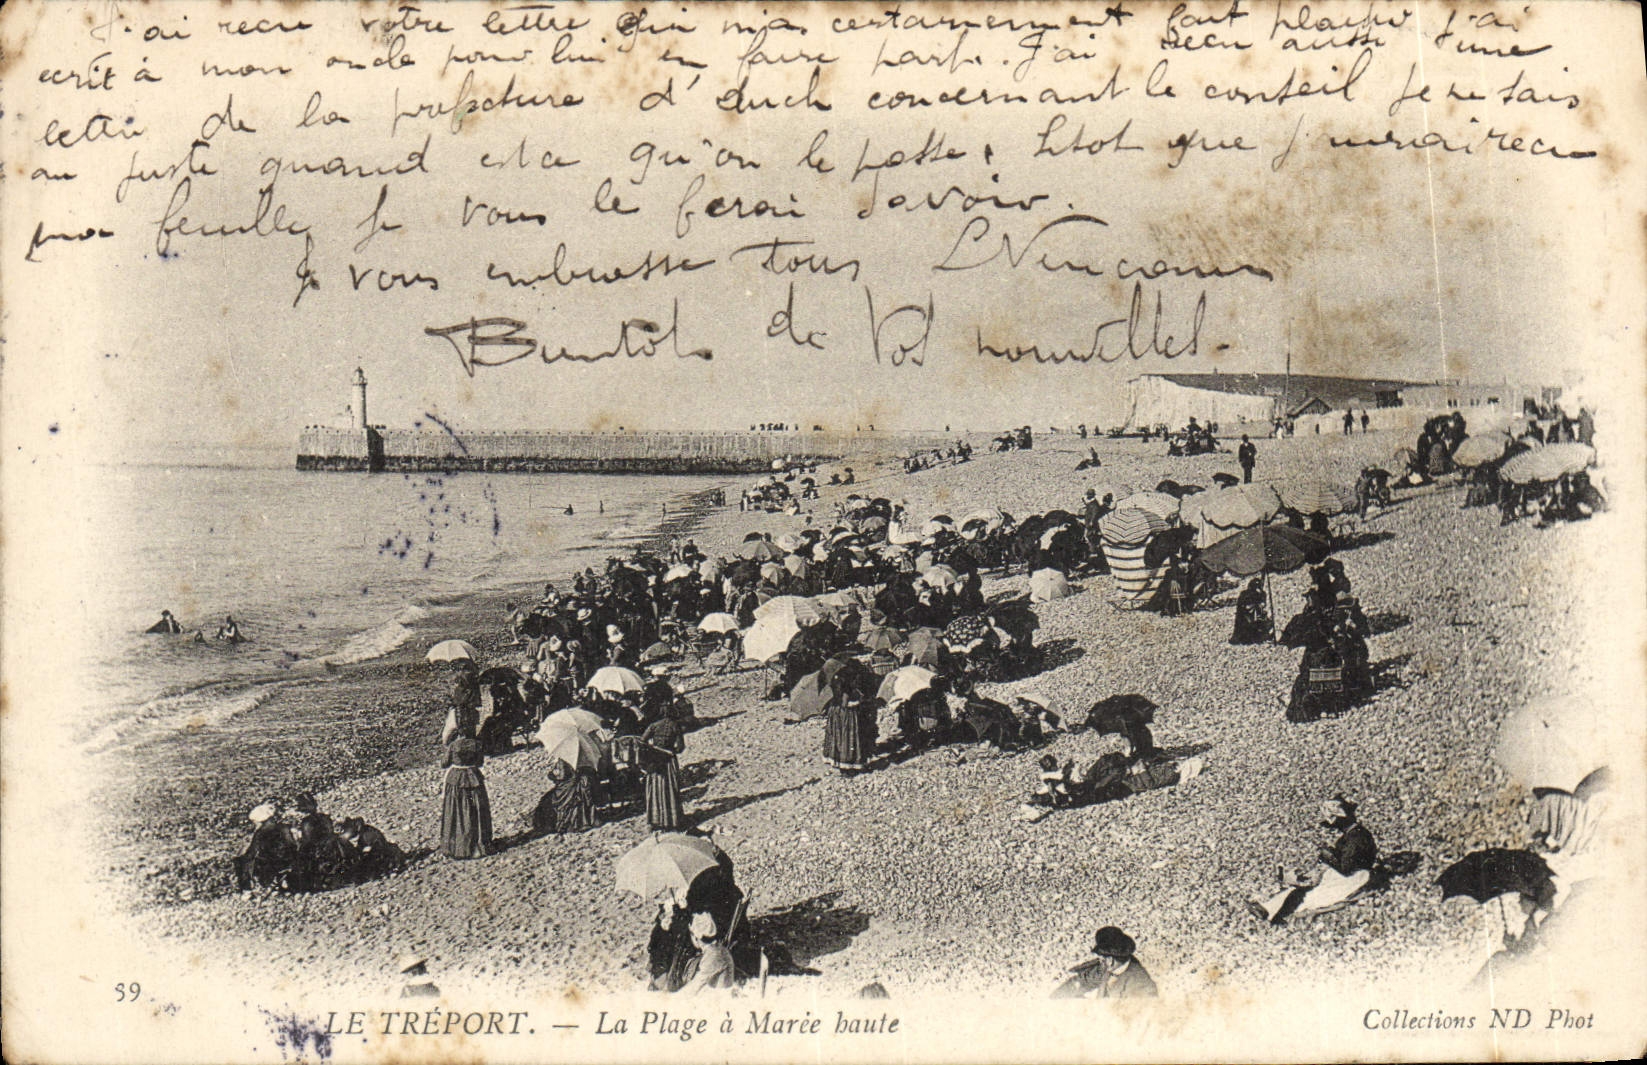 J'ai recu votre lettre qui m'a certainement fait plaisir j'ai
ecrit à mon oncle pour lui en faire part. J'ai recu aussi une
lettre de la prefecture d'Auch concernant le conseil je ne sais
au juste quand est ce qu'on le passe, sitot que j'aurai recu
ma feuille je vous le ferai savoir.
Je vous embrasse tous
Bientôt de Vos nouvelles.
39
LE TRÉPORT. — La Plage à Marée haute
Collections ND Phot